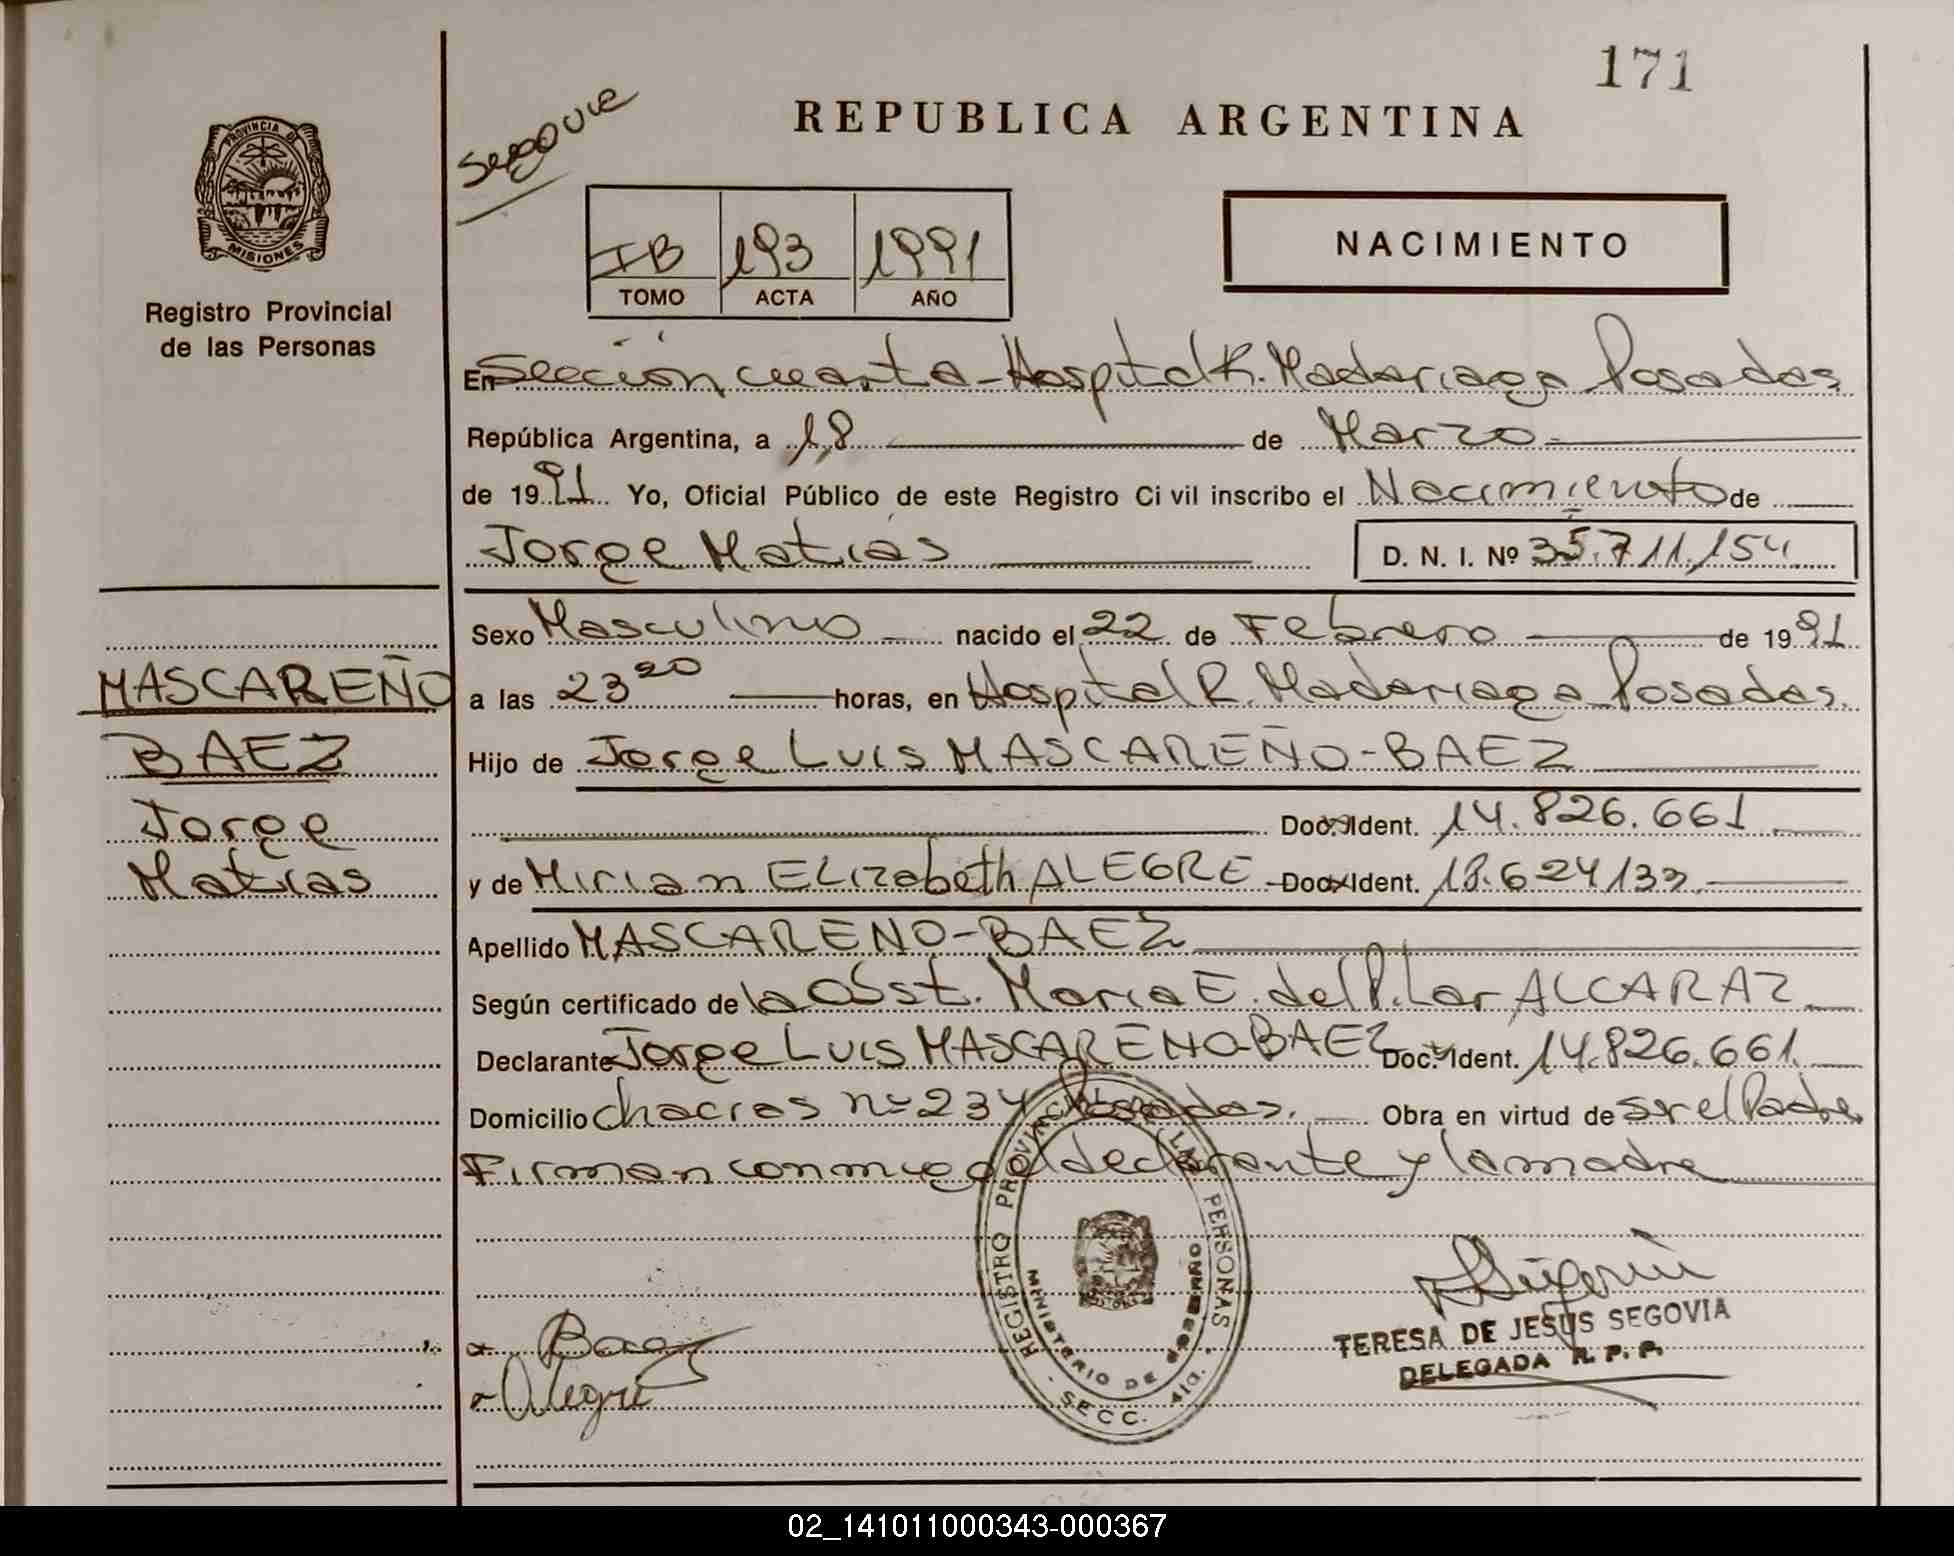 171
Segovia
REPUBLICA ARGENTINA
PROVINCIA DE MISIONES
Registro Provincial
de las Personas
IB 193 1991
TOMO ACTA AÑO
NACIMIENTO
En Sección cuarta - Hospital R. Madariaga Posadas
República Argentina, a 18 de Marzo
de 1991 Yo, Oficial Público de este Registro Civil inscribo el Nacimiento de
Jorge Matías D. N. I. Nº 35.711.154
Sexo Masculino nacido el 22 de Febrero de 1991
a las 23 20 horas, en Hospital R. Madariaga Posadas.
Hijo de Jorge Luis MASCAREÑO-BAEZ
Doc. Ident. 14.826.661
y de Mirian ELizabeth ALEGRE Doc. Ident. 18.624133
Apellido MASCAREÑO-BAEZ
Según certificado de la Obst. María E. del Pilar ALCARAZ
Declarante Jorge Luis MASCAREÑO-BAEZ Doc. Ident. 14.826.661
Domicilio chacras nº 234 Posadas. Obra en virtud de ser el Padre
Firman conmigo el declarante y la madre
MASCAREÑO
BAEZ
Jorge
Matías
Baez
Alegre
REGISTRO PROVINCIAL DE LAS PERSONAS
MINISTERIO DE GOBIERNO
SECC. 4ta.
TERESA DE JESUS SEGOVIA
DELEGADA R. P. P.
02_141011000343-000367